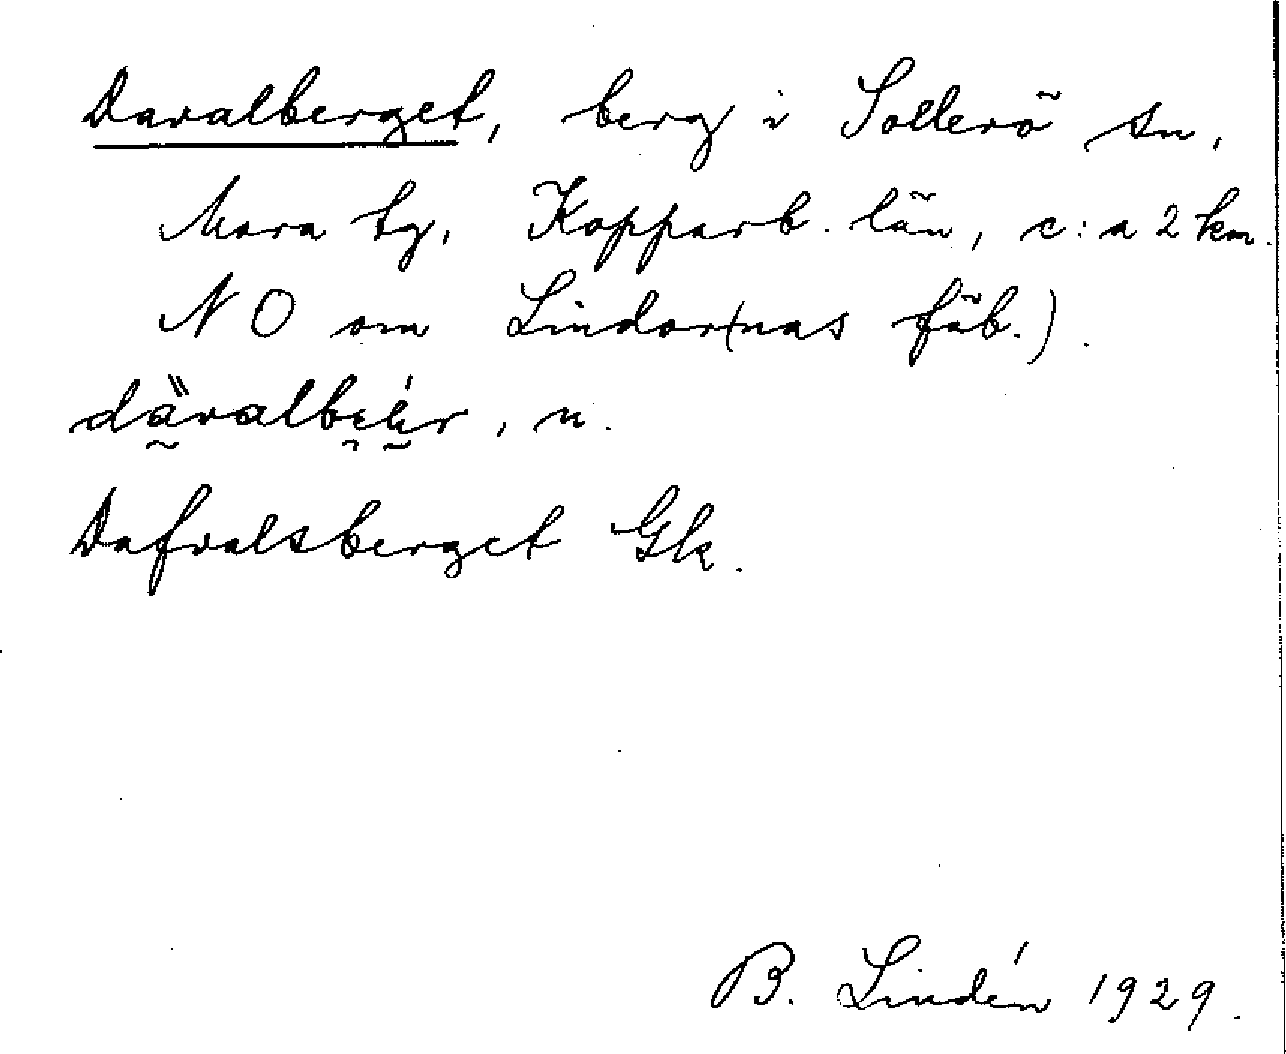 Davalberget, berg i Sollerö sn,
Mora tg, Kopparb. län, c:a 2 km.
NO om Lindor(nas fäb.).
, n.
Dafvalsberget Gk.
B. Lindén 1929.